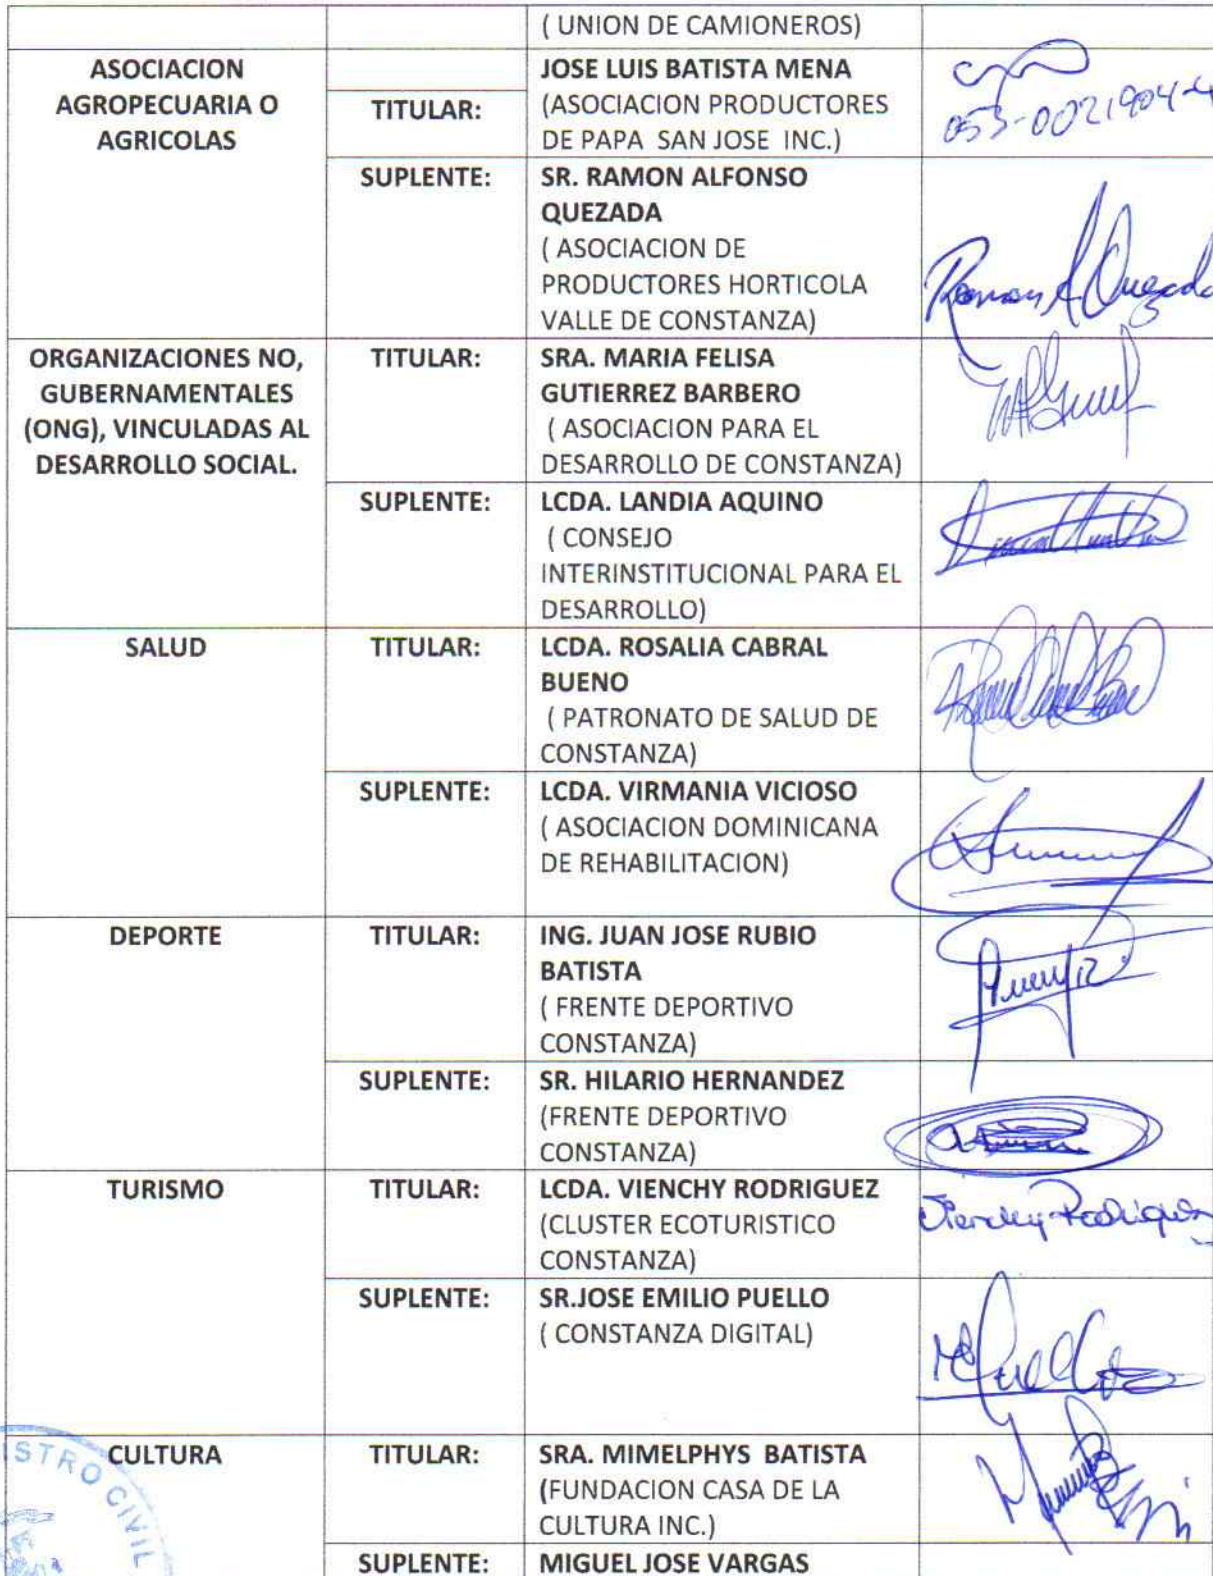 ( UNION DE CAMIONEROS)
ASOCIACION
AGROPECUARIA O
AGRICOLAS
TITULAR:
JOSE LUIS BATISTA MENA
(ASOCIACION PRODUCTORES
DE PAPA SAN JOSE INC.)
053-0021904-4
SUPLENTE:
SR. RAMON ALFONSO
QUEZADA
( ASOCIACION DE
PRODUCTORES HORTICOLA
VALLE DE CONSTANZA)
Ramon A Quezada
ORGANIZACIONES NO,
GUBERNAMENTALES
(ONG), VINCULADAS AL
DESARROLLO SOCIAL.
TITULAR:
SRA. MARIA FELISA
GUTIERREZ BARBERO
( ASOCIACION PARA EL
DESARROLLO DE CONSTANZA)
SUPLENTE:
LCDA. LANDIA AQUINO
( CONSEJO
INTERINSTITUCIONAL PARA EL
DESARROLLO)
SALUD
TITULAR:
LCDA. ROSALIA CABRAL
BUENO
( PATRONATO DE SALUD DE
CONSTANZA)
SUPLENTE:
LCDA. VIRMANIA VICIOSO
( ASOCIACION DOMINICANA
DE REHABILITACION)
DEPORTE
TITULAR:
ING. JUAN JOSE RUBIO
BATISTA
( FRENTE DEPORTIVO
CONSTANZA)
SUPLENTE:
SR. HILARIO HERNANDEZ
(FRENTE DEPORTIVO
CONSTANZA)
TURISMO
TITULAR:
LCDA. VIENCHY RODRIGUEZ
(CLUSTER ECOTURISTICO
CONSTANZA)
Vienchy Rodriguez
SUPLENTE:
SR.JOSE EMILIO PUELLO
( CONSTANZA DIGITAL)
CULTURA
TITULAR:
SRA. MIMELPHYS BATISTA
(FUNDACION CASA DE LA
CULTURA INC.)
SUPLENTE:
MIGUEL JOSE VARGAS
ISTRO CIVIL